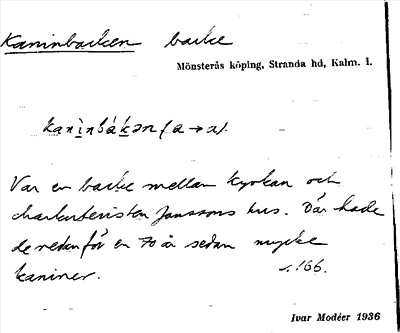 Kaninbacken backe
Mönsterås köping, Stranda hd, Kalm. l.
kanìnbákən (a → a).
Var en backe mellan kyrkan och
charkuteristen Janssons hus. Där hade
de nedanför en 70 år sedan mycke
kaniner. s. 166.
Ivar Modéer 1936